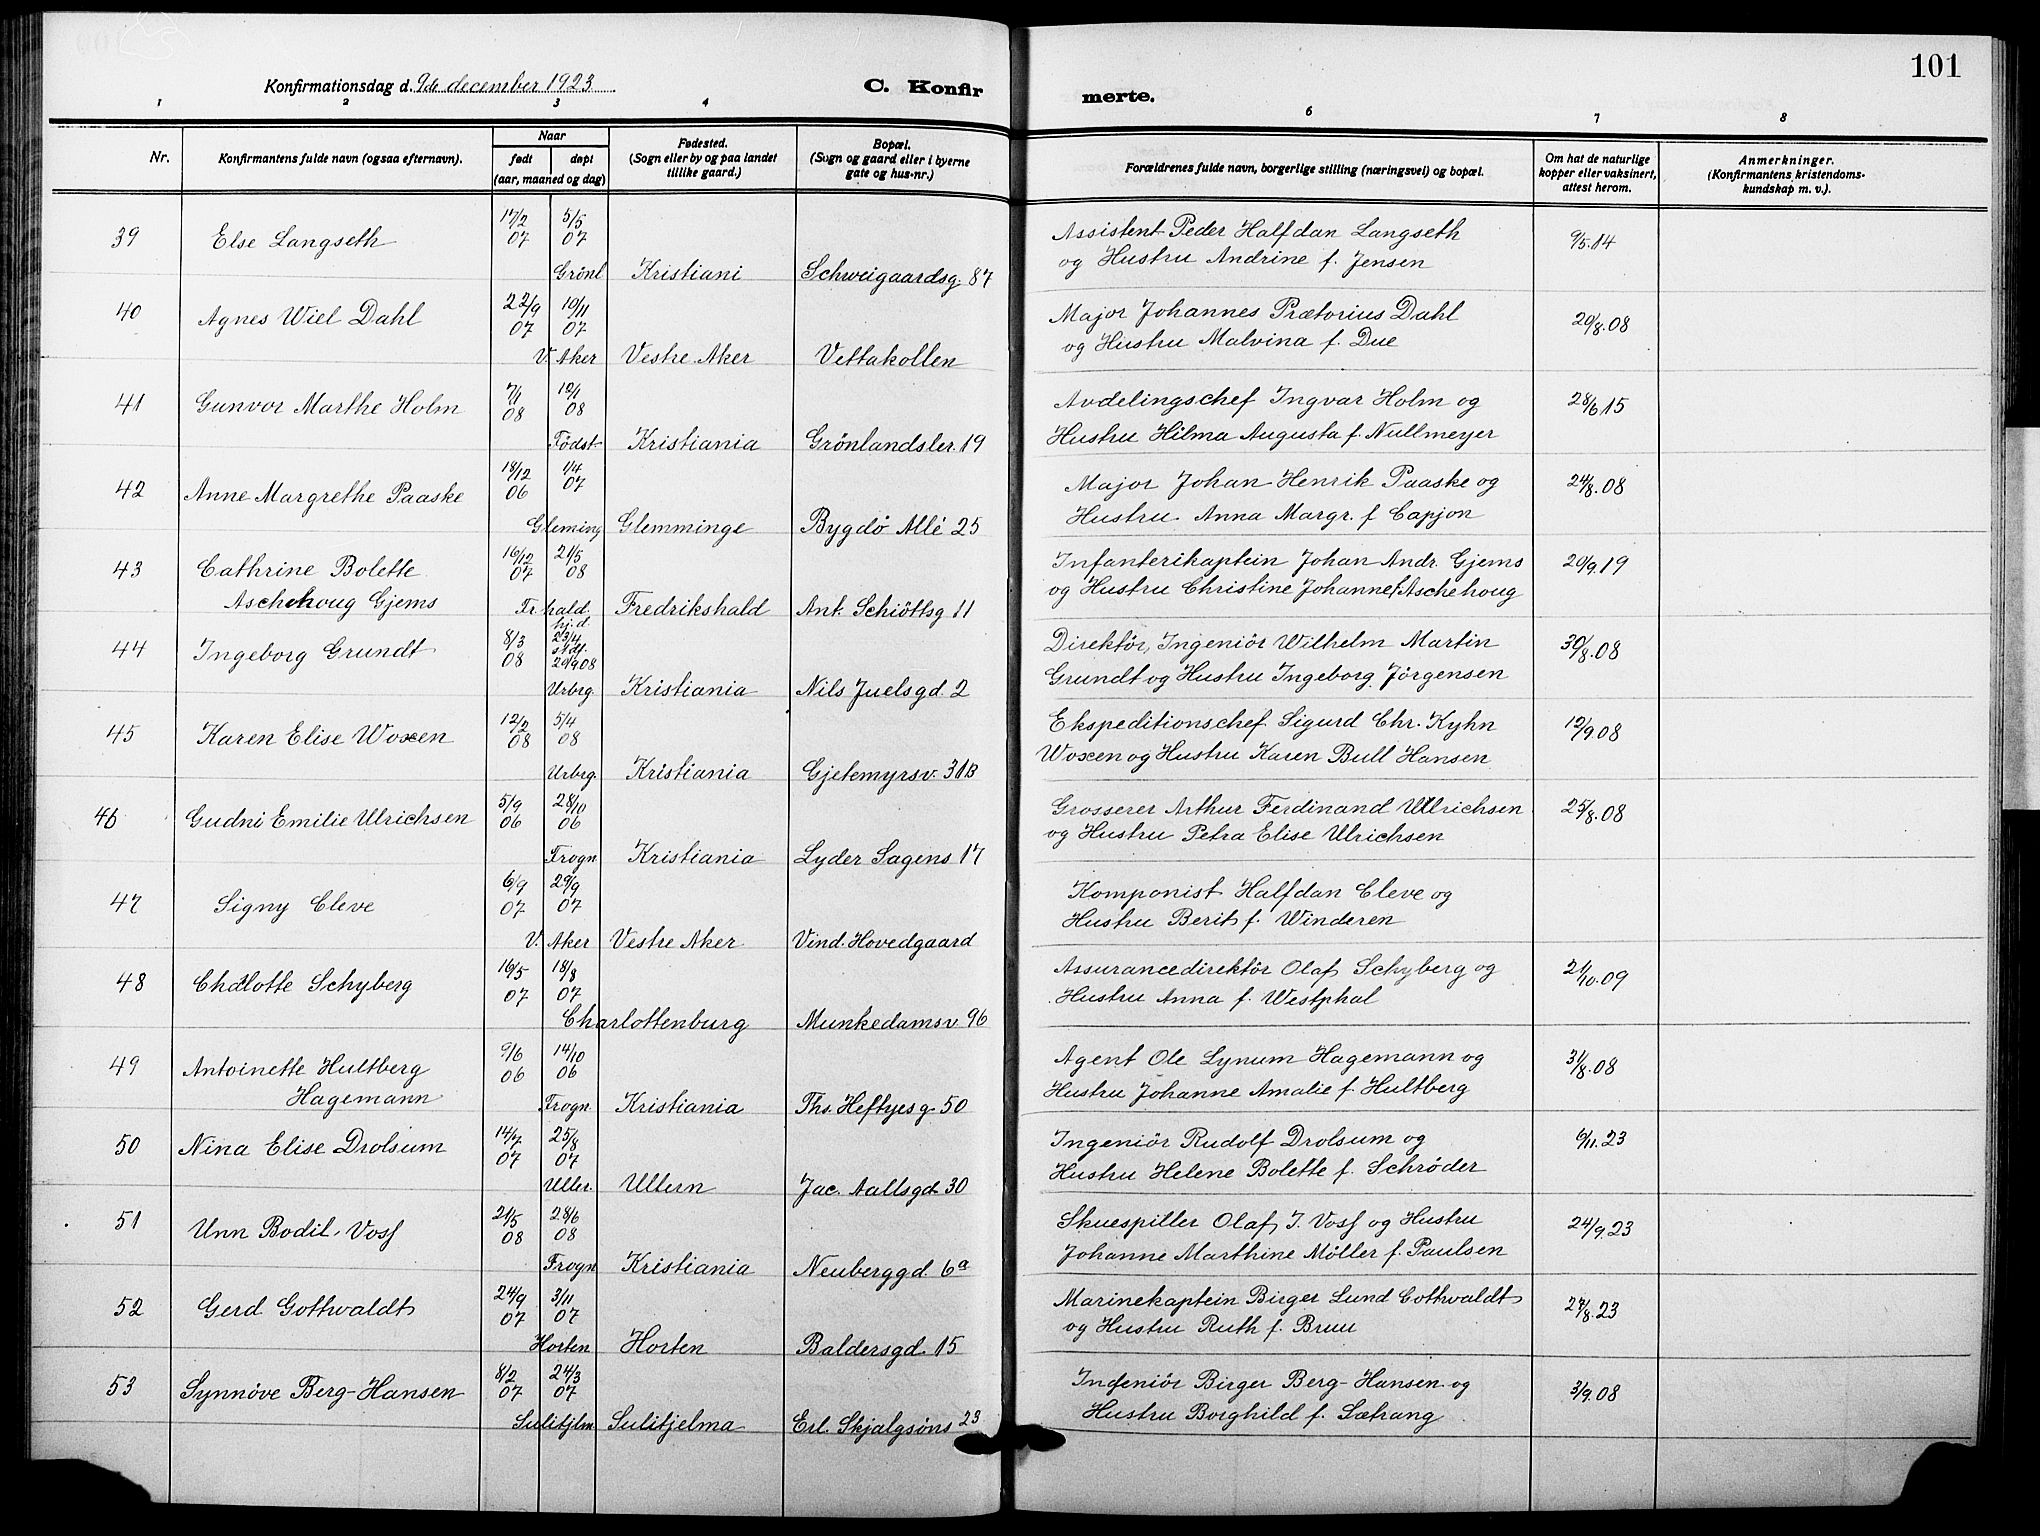 101
Konfirmationsdag d. 9de december 1923
C. Konfir
merte.
1 2 3 4 6 7 8
Nr.
Konfirmantens fulde navn (ogsaa efternavn).
Naar
født døpt
(aar, maaned og dag)
Fødested.
(Sogn eller by og paa landet
tillike gaard.)
Bopæl.
(Sogn og gaard eller i byerne
gate og hus-nr.)
Forældrenes fulde navn, borgerlige stilling (næringsvei) og bopæl.
Om hat de naturlige
kopper eller vaksinert,
attest herom.
Anmerkninger.
(Konfirmantens kristendoms-
kundskap m. v.).
39 Else Langseth 17/2 07 5/5 07
Grønl Kristiani Schweigaardsg. 87
Assistent Peder Halfdan Langseth 9/5.14
og Hustru Andrine f. Jensen
40 Agnes Wiel Dahl 22/9 07 10/11 07
V. Aker Vestre Aker Vettakollen
Major Johannes Prætorius Dahl 20/8.08
og Hustru Malvina f. Due
41 Gunvor Marthe Holm 7/1 08 19/1 08
Födst- Kristiania Grönlandsler. 19
Avdelingschef Ingvar Holm og 28/6 15
Hustru Hilma Augusta f. Nullmeyer
42 Anne Margrethe Paaske 18/12 06 1/4 07
Gleming Glemminge Bygdö Allé 25
Major Johan Henrik Paaske og 24/8.08
Hustru Anna Margr. f Capjon
43 Cathrine Bolette 16/12 07 21/5 08
Aschehoug Gjems Fr.hald. Fredrikshald Ant. Schiöttsg 11
Infanterikaptein Johan Andr. Gjems 20/9.19
og Hustru Christine Johanne f. Aschehoug
44 Ingeborg Grundt 8/3 08 hj.d. 23/4 st.df. 20/9 08
Urbrg. Kristiania Nils Juelsgd. 2
Direktör, Ingeniör Wilhelm Martin 30/8.08
Grundt og Hustru Ingeborg Jörgensen
45 Karen Elise Woxen 12/2 08 5/4 08
Urbrg. Kristiania Gjetemyrsv. 31B
Ekspeditionschef Sigurd Chr. Kyhn 12/9.08
Woxen og Hustru Karen Bull Hansen
46 Gudni Emilie Ulrichsen 5/9 06 28/10 06
Frogn Kristiania Lyder Sagens 17
Grosserer Arthur Ferdinand Ullrichsen 25/8.08
og Hustru Petra Elise Ulrichsen
47 Signy Cleve 6/9 07 29/9 07
V. Aker Vestre Aker Vind. Hovedgaard
Komponist Halfdan Cleve og
Hustru Berit f. Winderen
48 Chalotte Schyberg 16/5 07 18/8 07
Charlottenburg Munkedamsv. 96
Assurancedirektör Olaf Schyberg og 21/10.09
Hustru Anna f. Westphal
49 Antoinette Hultberg 9/6 06 14/10 06
Hagemann Frogn. Kristiania Ths. Heftyes g. 50
Agent Ole Lynum Hagemann og 31/8.08
Hustru Johanne Amalie f. Hultberg
50 Nina Elise Drolsum 14/7 07 25/8 07
Uller. Ullern Jac. Aallsgd. 30
Ingeniör Rudolf Drolsum og 6/11.23
Hustru Helene Bolette f. Schrøder
51 Unn Bodil Voss 21/5 08 28/6 08
Frogn Kristiania Neuberggd. 6a
Skuespiller Olaf J. Voss og Hustru 24/9.23
Johanne Marthine Møller f. Paulsen
52 Gerd Gottwaldt 24/9 07 3/11 07
Horten Horten Baldersgd. 15
Marinekaptein Birger Lund Gottwaldt 27/8.23
og Hustru Ruth f. Bruu
53 Synnöve Berg-Hansen 8/2 07 24/3 07
Sulitjlm. Sulitjelma Erl. Skjalgsöns 23
Ingeniör Birger Berg-Hansen og 3/9.08
Hustru Borghild f. Sætrang